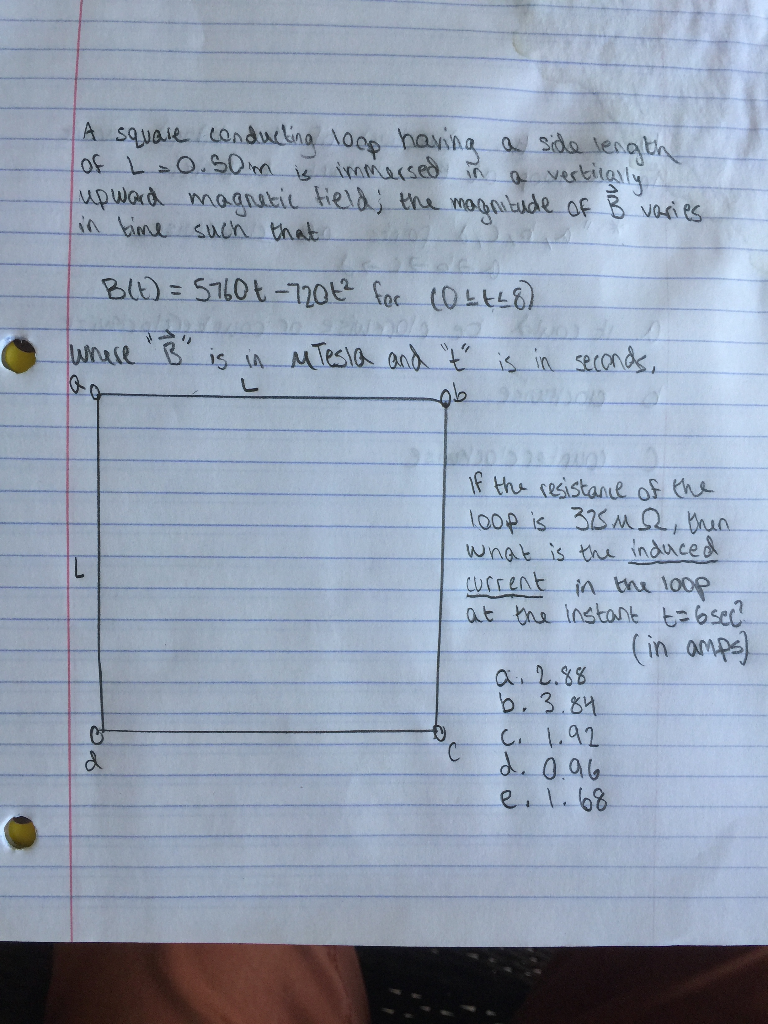 A square conducting loop having a side length
of L = 0.50m is immersed in a vertically
upward magnetic field; the magnitude of B⃗ varies
in time such that
B(t) = 5760t - 720t² for (0 ≤ t ≤ 8)
where "B⃗" is in μTesla and "t" is in seconds.
a L b
L
If the resistance of the
loop is 375 μΩ, then
what is the induced
current in the loop
at the instant t=6sec?
(in amps)
a. 2.88
b. 3.84
c. 1.92
d. 0.96
e. 1.68
d c